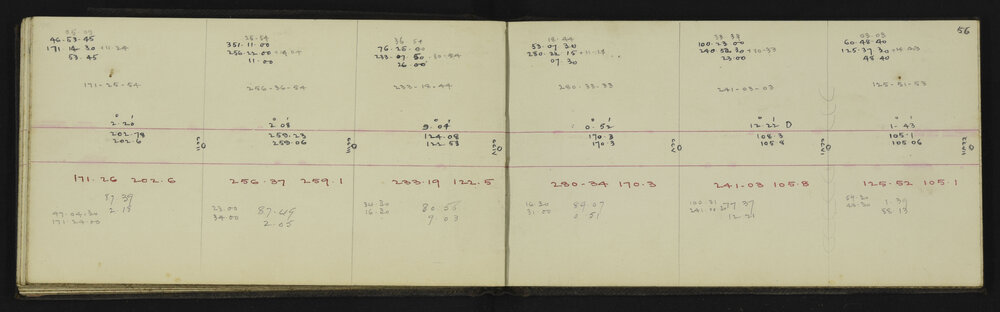 56
46.53.45
171.14.30 +11.24
53.45
171-25-54
2° 20'
202.78
202.6
171.26 202.6
87 39
2.13
97.04.30
171.24.00
25-54
351.11.00
256.22.00
11.00
256-36-54
2° 08'
259.23
259.06
256.37 259.1
23.00
34.00
87.49
2.05
36 54
76.25.00
26 00
9° 04'
124.08
122.53
233.19 122.5
16.30
9 03
18-44
53.07 30
280.22 15
07.30
280-33-33
0° 52'
170.3
170.3
280-34 170.3
16.30
31.00
89.07
0 51
33 33
100.23 00
240.58 30 +10-33
23.00
241-03-03
12° 22' D
108.3
105.8
241-03 105.8
77 37
12.21
60-48-40
125.37.30
48 40
125-51-53
1° 43'
105.1
105.06
125-52 105.1
1.39
88.13